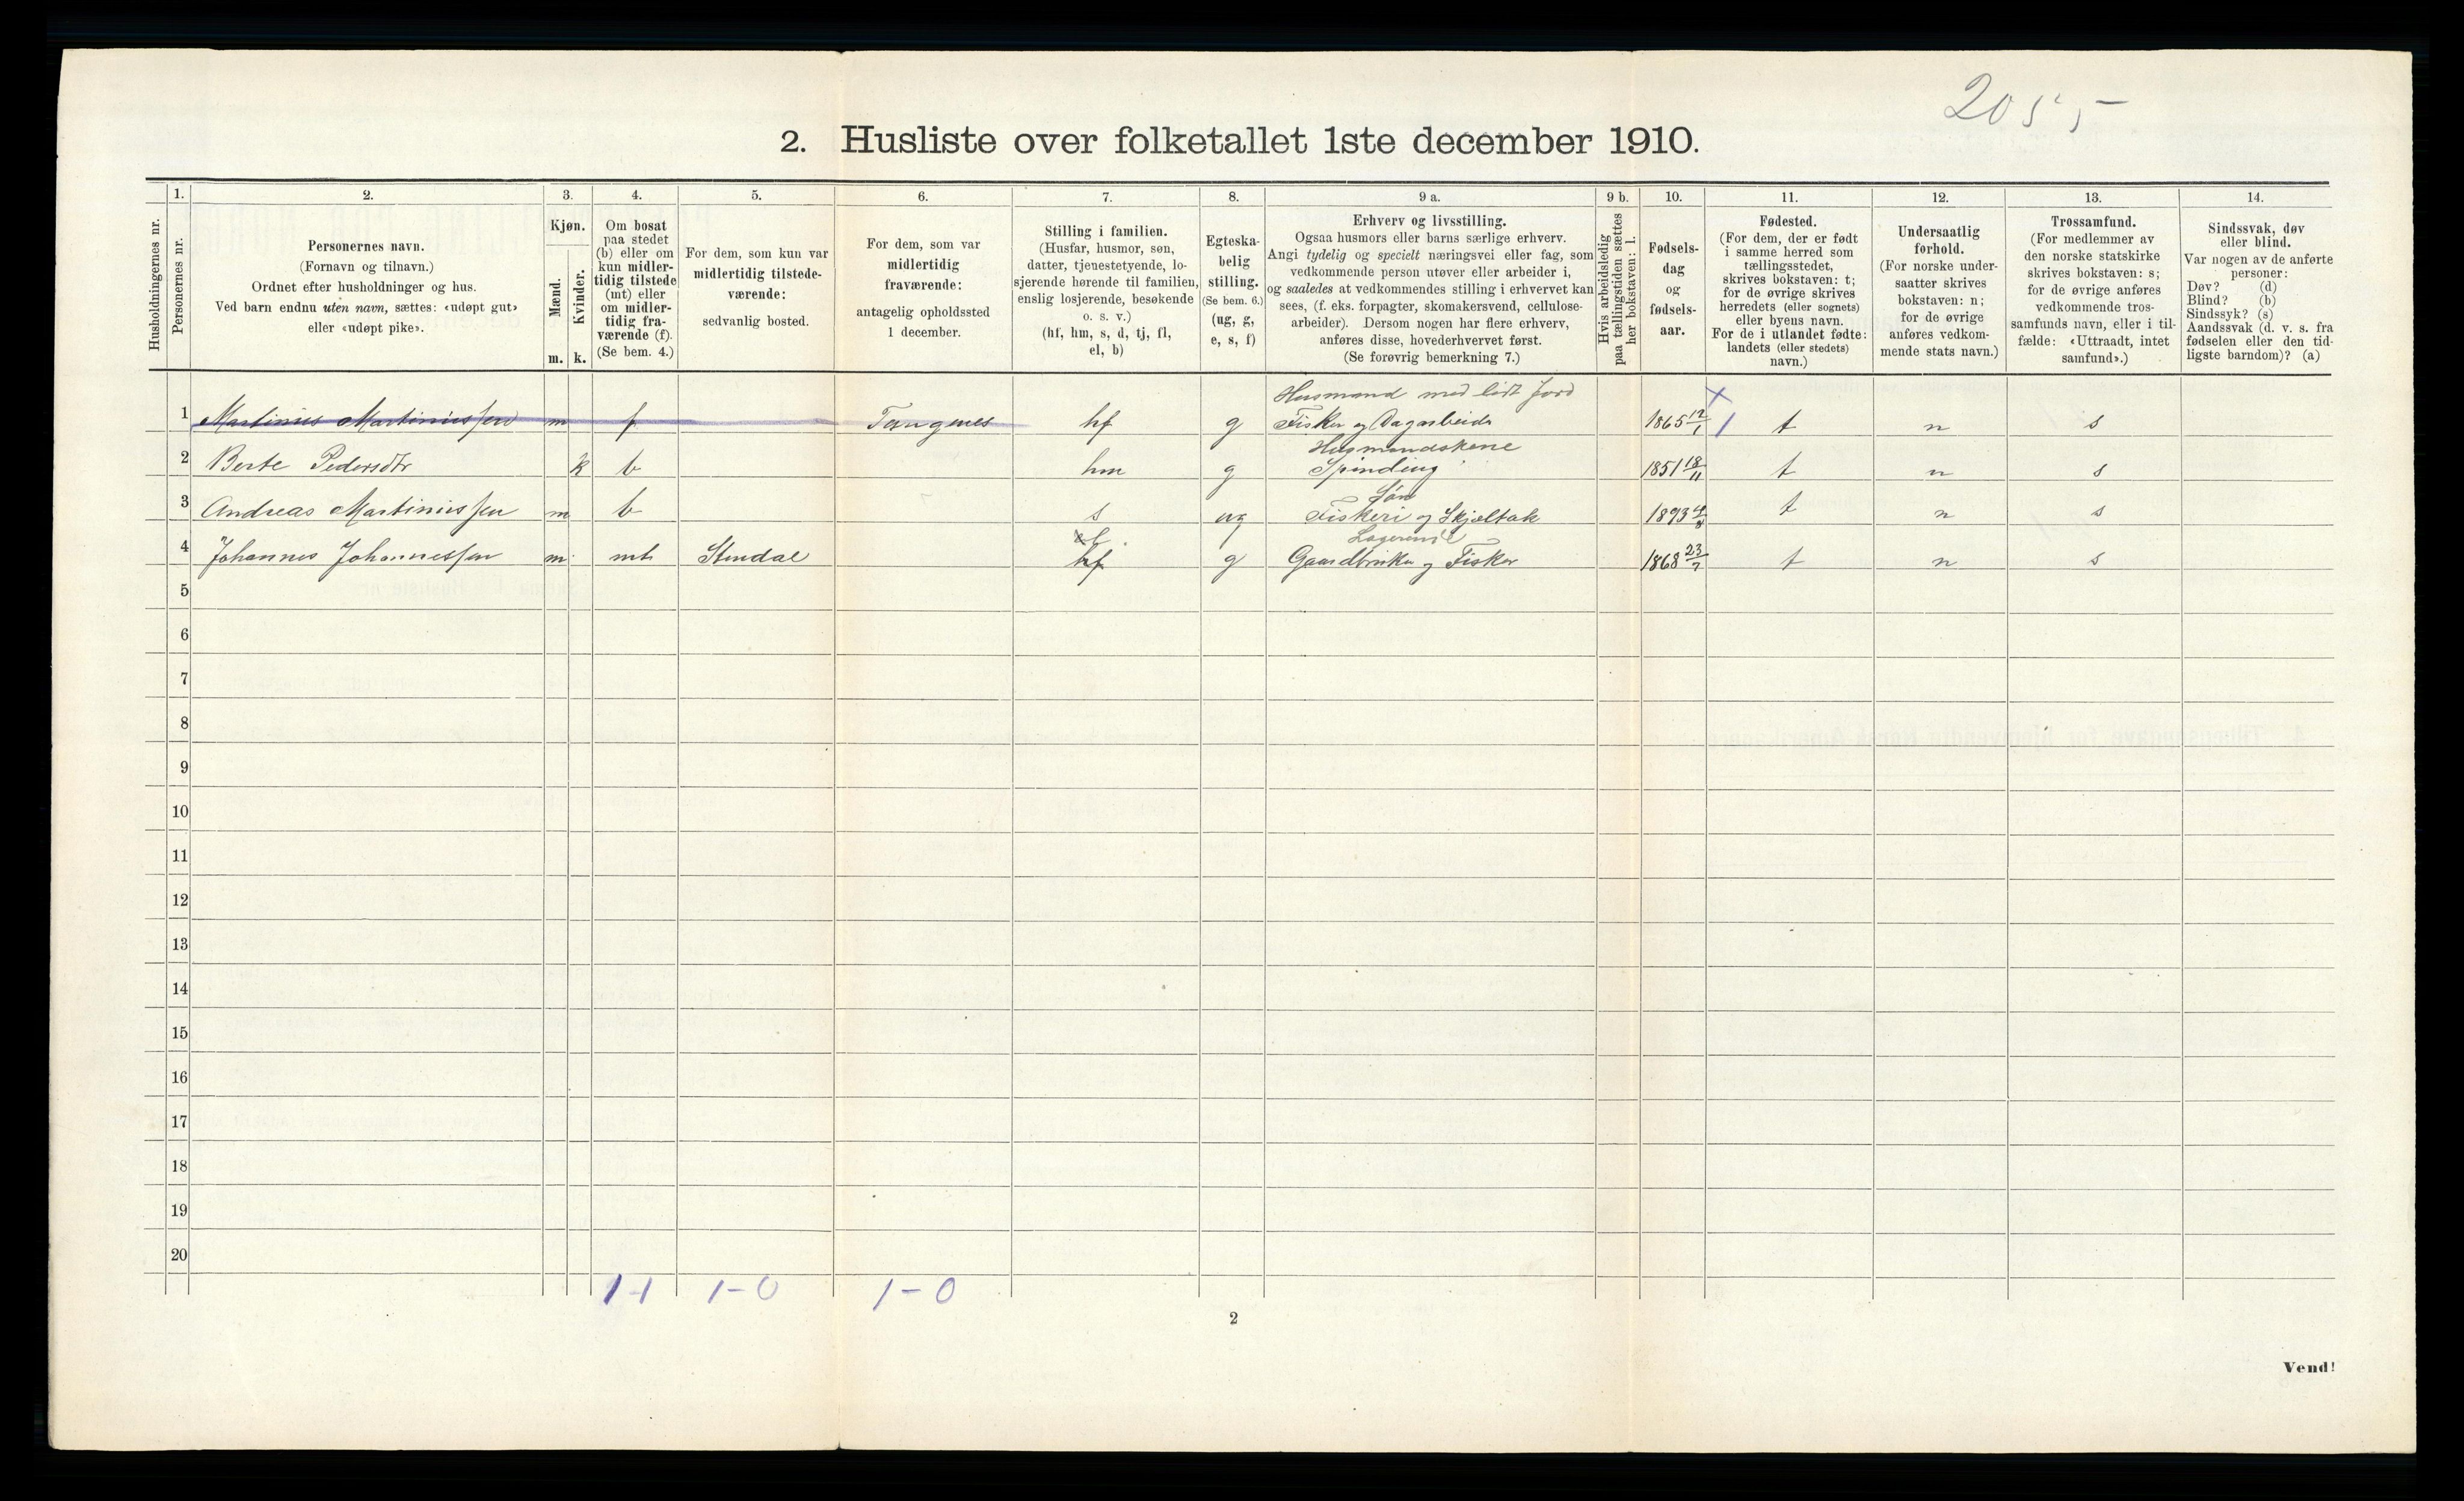 2055-
2. Husliste over folketallet 1ste december 1910.
Husholdningernes nr.
1.
Personernes nr.
2.
Personernes navn.
(Fornavn og tilnavn.)
Ordnet efter husholdninger og hus.
Ved barn endnu uten navn, sættes: «udøpt gut»
eller «udøpt pike».
3.
Kjøn.
Mænd.
Kvinder.
m. k.
4.
Om bosat
paa stedet
(b) eller om
kun midler-
tidig tilstede
(mt) eller
om midler-
tidig fra-
værende (f).
(Se bem. 4.)
5.
For dem, som kun var
midlertidig tilstede-
værende:
sedvanlig bosted.
6.
For dem, som var
midlertidig
fraværende:
antagelig opholdssted
1 december.
7.
Stilling i familien.
(Husfar, husmor, søn,
datter, tjenestetyende, lo-
sjerende hørende til familien,
enslig losjerende, besøkende
o. s. v.)
(hf, hm, s, d, tj, fl,
el, b)
8.
Egteska-
belig
stilling.
(Se bem. 6.)
(ug, g,
e, s, f)
9 a.
Erhverv og livsstilling.
Ogsaa husmors eller barns særlige erhverv.
Angi tydelig og specielt næringsvei eller fag, som
vedkommende person utøver eller arbeider i,
og saaledes at vedkommendes stilling i erhvervet kan
sees, (f. eks. forpagter, skomakersvend, cellulose-
arbeider). Dersom nogen har flere erhverv,
anføres disse, hovederhvervet først.
(Se forøvrig bemerkning 7.)
9 b.
Hvis arbeidsledig
paa tællingstiden sættes
her bokstaven: l.
10.
Fødsels-
dag
og
fødsels-
aar.
11.
Fødested.
(For dem, der er født
i samme herred som
tællingsstedet,
skrives bokstaven: t;
for de øvrige skrives
herredets (eller sognets)
eller byens navn.
For de i utlandet fødte:
landets (eller stedets)
navn.)
12.
Undersaatlig
forhold.
(For norske under-
saatter skrives
bokstaven: n;
for de øvrige
anføres vedkom-
mende stats navn.)
13.
Trossamfund.
(For medlemmer av
den norske statskirke
skrives bokstaven: s;
for de øvrige anføres
vedkommende tros-
samfunds navn, eller i til-
fælde: «Uttraadt, intet
samfund».)
14.
Sindssvak, døv
eller blind.
Var nogen av de anførte
personer:
Døv? (d)
Blind? (b)
Sindssyk? (s)
Aandssvak (d. v. s. fra
fødselen eller den tid-
ligste barndom)? (a)
Husmand med lidt Jord
1 Martinius Martiniussen m f Tangenes hf g Fisker og Dagarbeider 1865 12/1 t n s
Husmandskone
2 Berte Pedersdtr k b hm g Spinding 1851 18/11 t n s
Søn
3 Andreas Martiniussen m b s ug Fiskeri og Skjæltak 1893 4/8 t n s
el Logerende
4 Johannes Johannessen m mt Stendal hf g Gaardbruker og Fisker 1868 23/7 t n s
5
6
7
8
9
10
11
12
13
14
15
16
17
18
19
20
1-1 1-0 1-0
2
Vend!